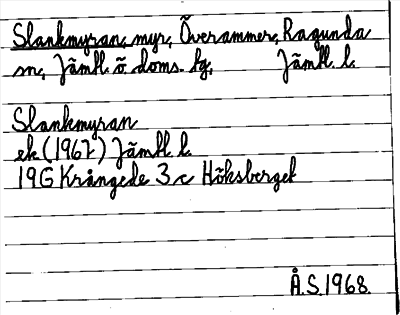 Slankmyran, myr, Överammer, Ragunda
sn, Jämtl. ö. doms. fg, Jämtl. l.
Slankmyran
ek (1967) Jämtl. l.
19G Krångede 3 c Höksberget
Å.S. 1968.